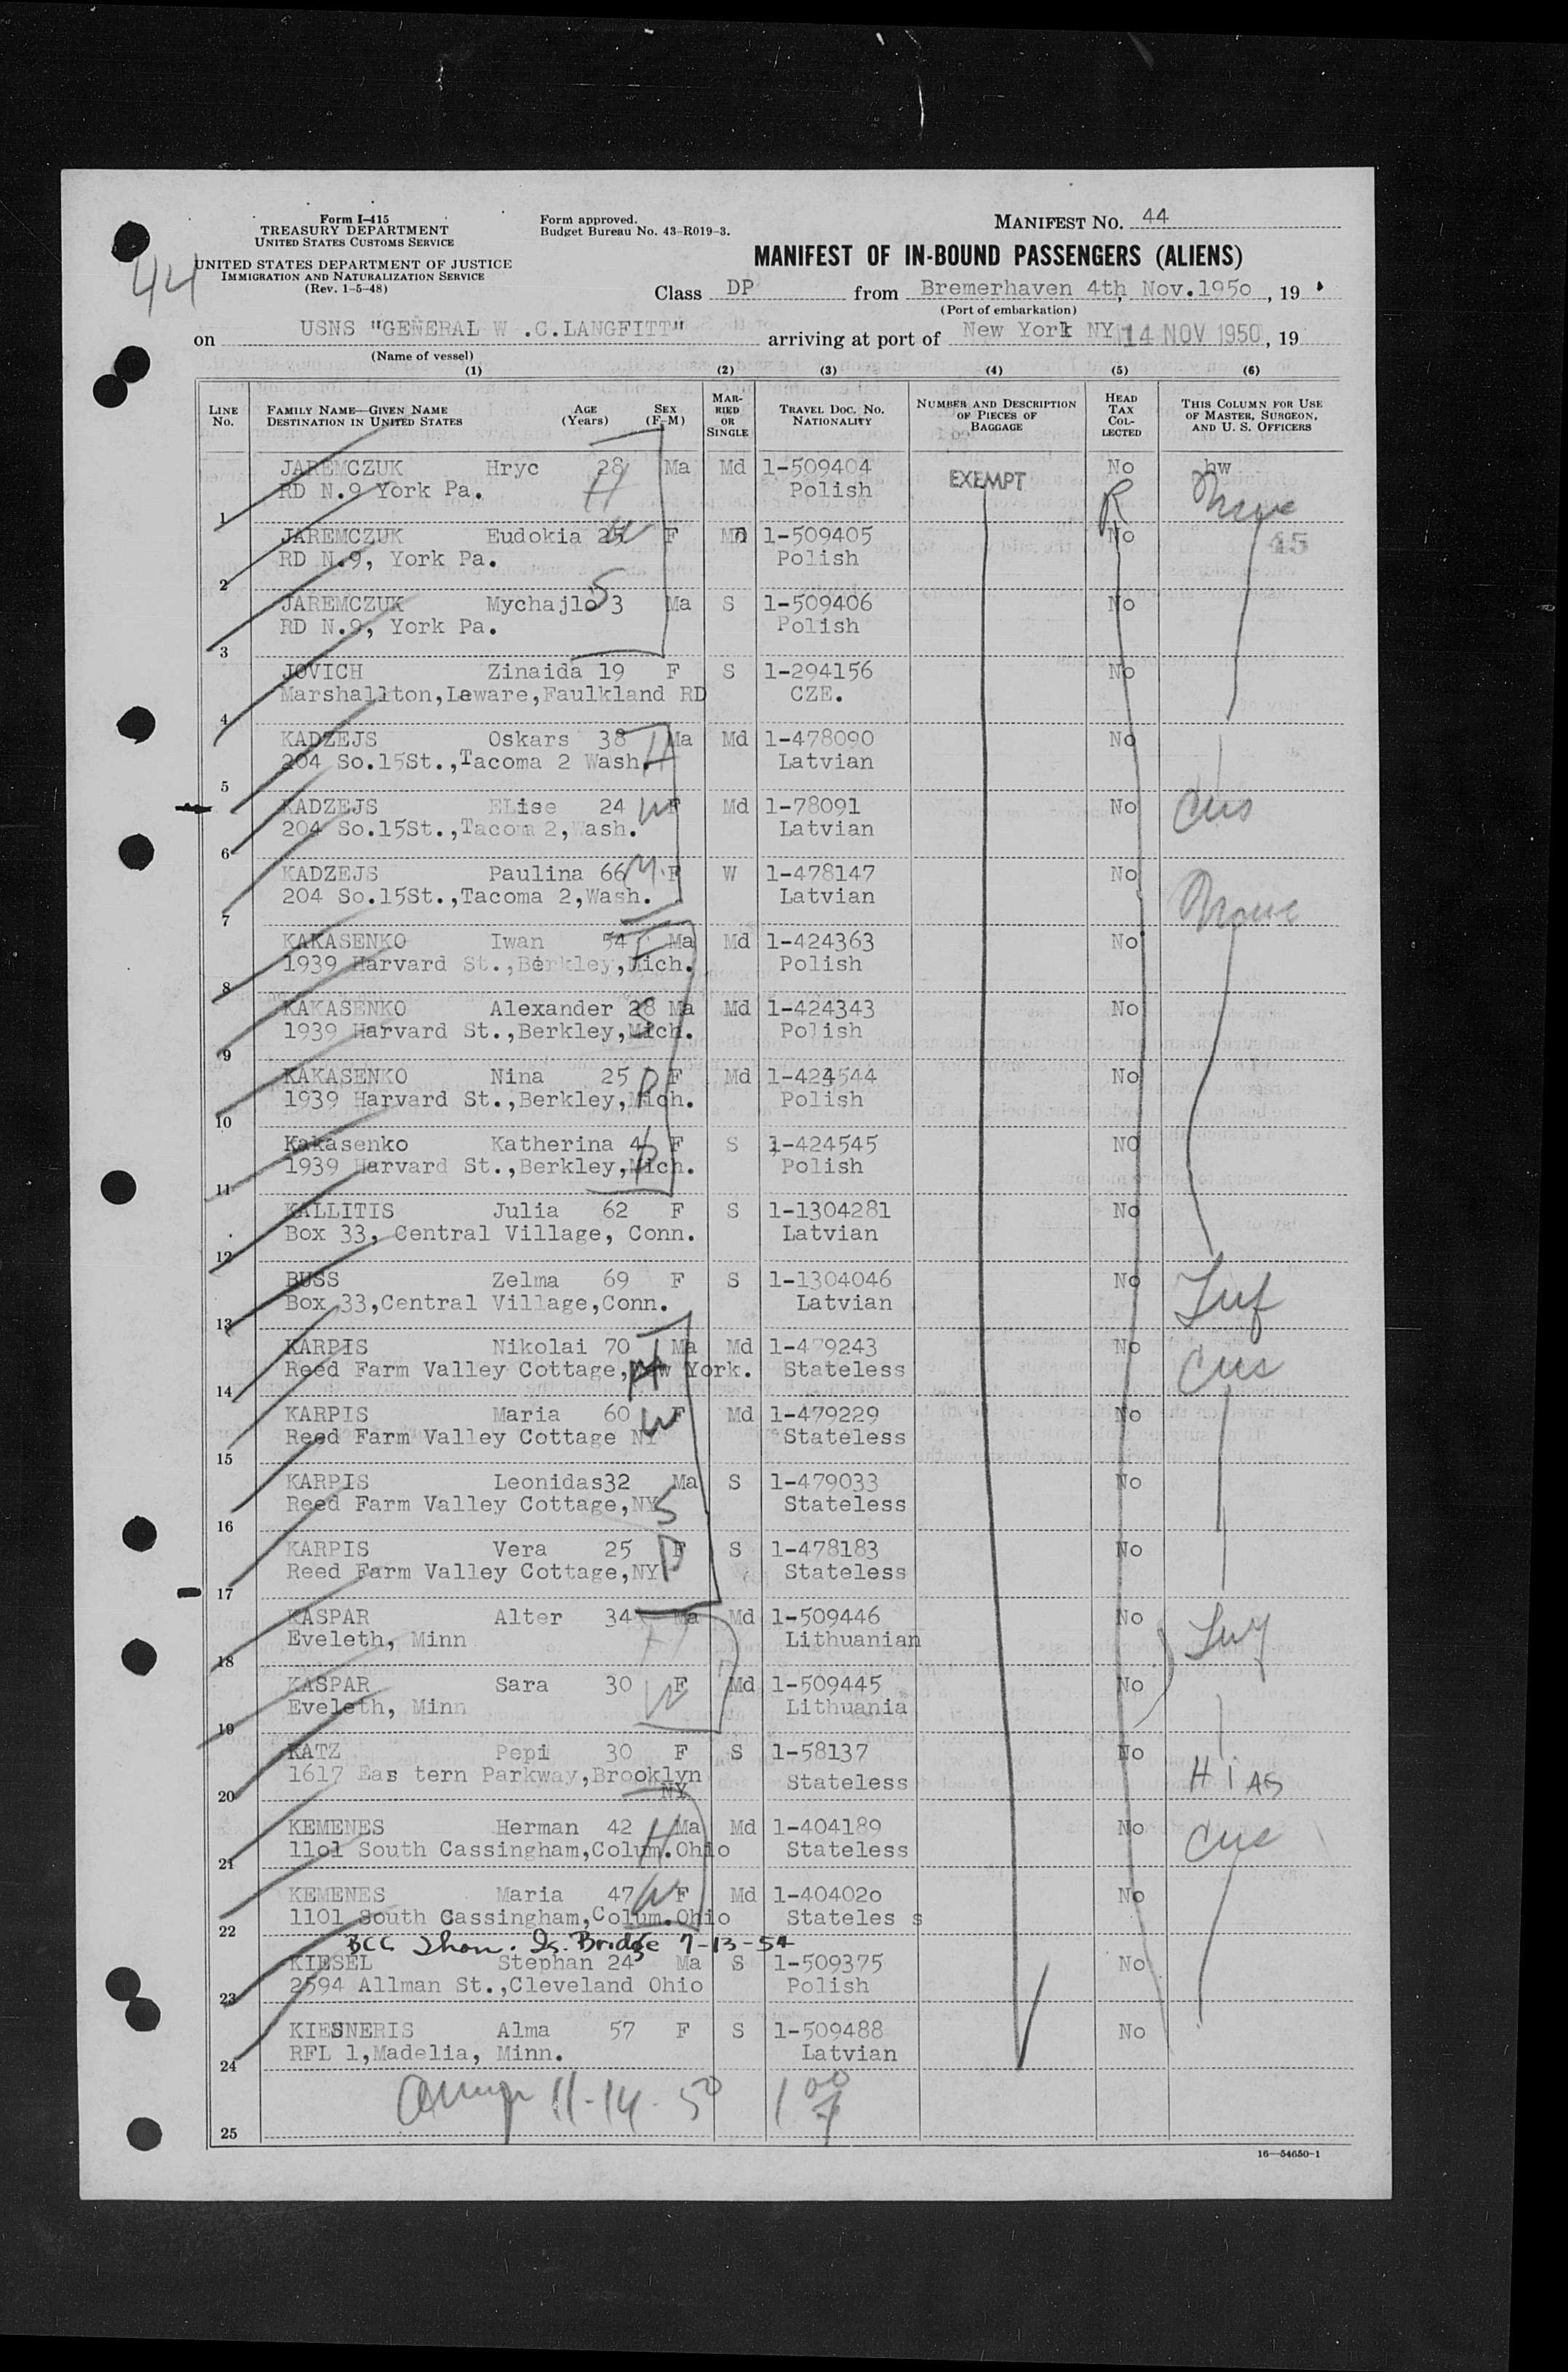 Form I-415
TREASURY DEPARTMENT
UNITED STATES CUSTOMS SERVICE
UNITED STATES DEPARTMENT OF JUSTICE
IMMIGRATION AND NATURALIZATION SERVICE
(Rev. 1-5-48)
44
Form approved.
Budget Bureau No. 43-R019-3.
MANIFEST NO. 44
MANIFEST OF IN-BOUND PASSENGERS (ALIENS)
Class DP from Bremerhaven 4th, Nov.195o, 19
(Port of embarkation)
on USNS "GENERAL W .C.LANGFITT" arriving at port of New York NY 14 NOV 1950, 19
(Name of vessel)
(1) (2) (3) (4) (5) (6)
LINE No. FAMILY NAME—GIVEN NAME DESTINATION IN UNITED STATES AGE (Years) SEX (F-M) MARRIED OR SINGLE TRAVEL DOC. NO. NATIONALITY NUMBER AND DESCRIPTION OF PIECES OF BAGGAGE HEAD TAX COLLECTED THIS COLUMN FOR USE OF MASTER, SURGEON, AND U. S. OFFICERS
JAREMCZUK Hryc 28 Ma Md 1-509404 EXEMPT No hw
1 RD N.9 York Pa. H Polish R
JAREMCZUK Eudokia 25 W F Md 1-509405 No 45
2 RD N.9, York Pa. Polish
JAREMCZUK Mychajlo 3 S Ma S 1-509406 No
3 RD N.9, York Pa. Polish
JOVICH Zinaida 19 F S 1-294156 No
4 Marshallton,Leware,Faulkland RD CZE.
KADZEJS Oskars 38 Ma Md 1-478090 No
5 204 So.15St.,Tacoma 2 Wash. H Latvian
KADZEJS ELise 24 W F Md 1-78091 No Cws
6 204 So.15St.,Tacoma 2,Wash. Latvian
KADZEJS Paulina 66 M. F W 1-478147 No
7 204 So.15St.,Tacoma 2,Wash. Latvian
KAKASENKO Iwan 54 F Ma Md 1-424363 No
8 1939 Harvard St.,Berkley,Mich. Polish
KAKASENKO Alexander 28 S Ma Md 1-424343 No
9 1939 Harvard St.,Berkley,Mich. Polish
KAKASENKO Nina 25 D F Md 1-424544 No
10 1939 Harvard St.,Berkley,Mich. Polish
Kakasenko Katherina 4 D F S 1-424545 NO
11 1939 Harvard St.,Berkley,Mich. Polish
KALLITIS Julia 62 F S 1-1304281 No
12 Box 33, Central Village, Conn. Latvian
BUSS Zelma 69 F S 1-1304046 No
13 Box 33,Central Village,Conn. Latvian
KARPIS Nikolai 70 Ma Md 1-479243 No Cws
14 Reed Farm Valley Cottage,New York. H Stateless
KARPIS Maria 60 W F Md 1-479229 No
15 Reed Farm Valley Cottage NY Stateless
KARPIS Leonidas32 Ma S 1-479033 No
16 Reed Farm Valley Cottage,NY S Stateless
KARPIS Vera 25 D F S 1-478183 No
17 Reed Farm Valley Cottage,NY Stateless
KASPAR Alter 34 H Ma Md 1-509446 No
18 Eveleth, Minn Lithuanian
KASPAR Sara 30 W F Md 1-509445 No
19 Eveleth, Minn Lithuania
KATZ Pepi 30 F S 1-58137 No
20 1617 Eas tern Parkway,Brooklyn NY Stateless HIAS
KEMENES Herman 42 H Ma Md 1-404189 No Cws
21 11o1 South Cassingham,Colum.Ohio Stateless
KEMENES Maria 47 W F Md 1-40402o No
22 1101 South Cassingham,Colum.Ohio Stateles s
BCC Thou. Is. Bridge 7-13-54
KIESEL Stephan 24 Ma S 1-509375 No
23 2594 Allman St.,Cleveland Ohio Polish
KIESNERIS Alma 57 F S 1-509488 No
24 RFL 1,Madelia, Minn. Latvian
25 11-14-50
16—54650-1